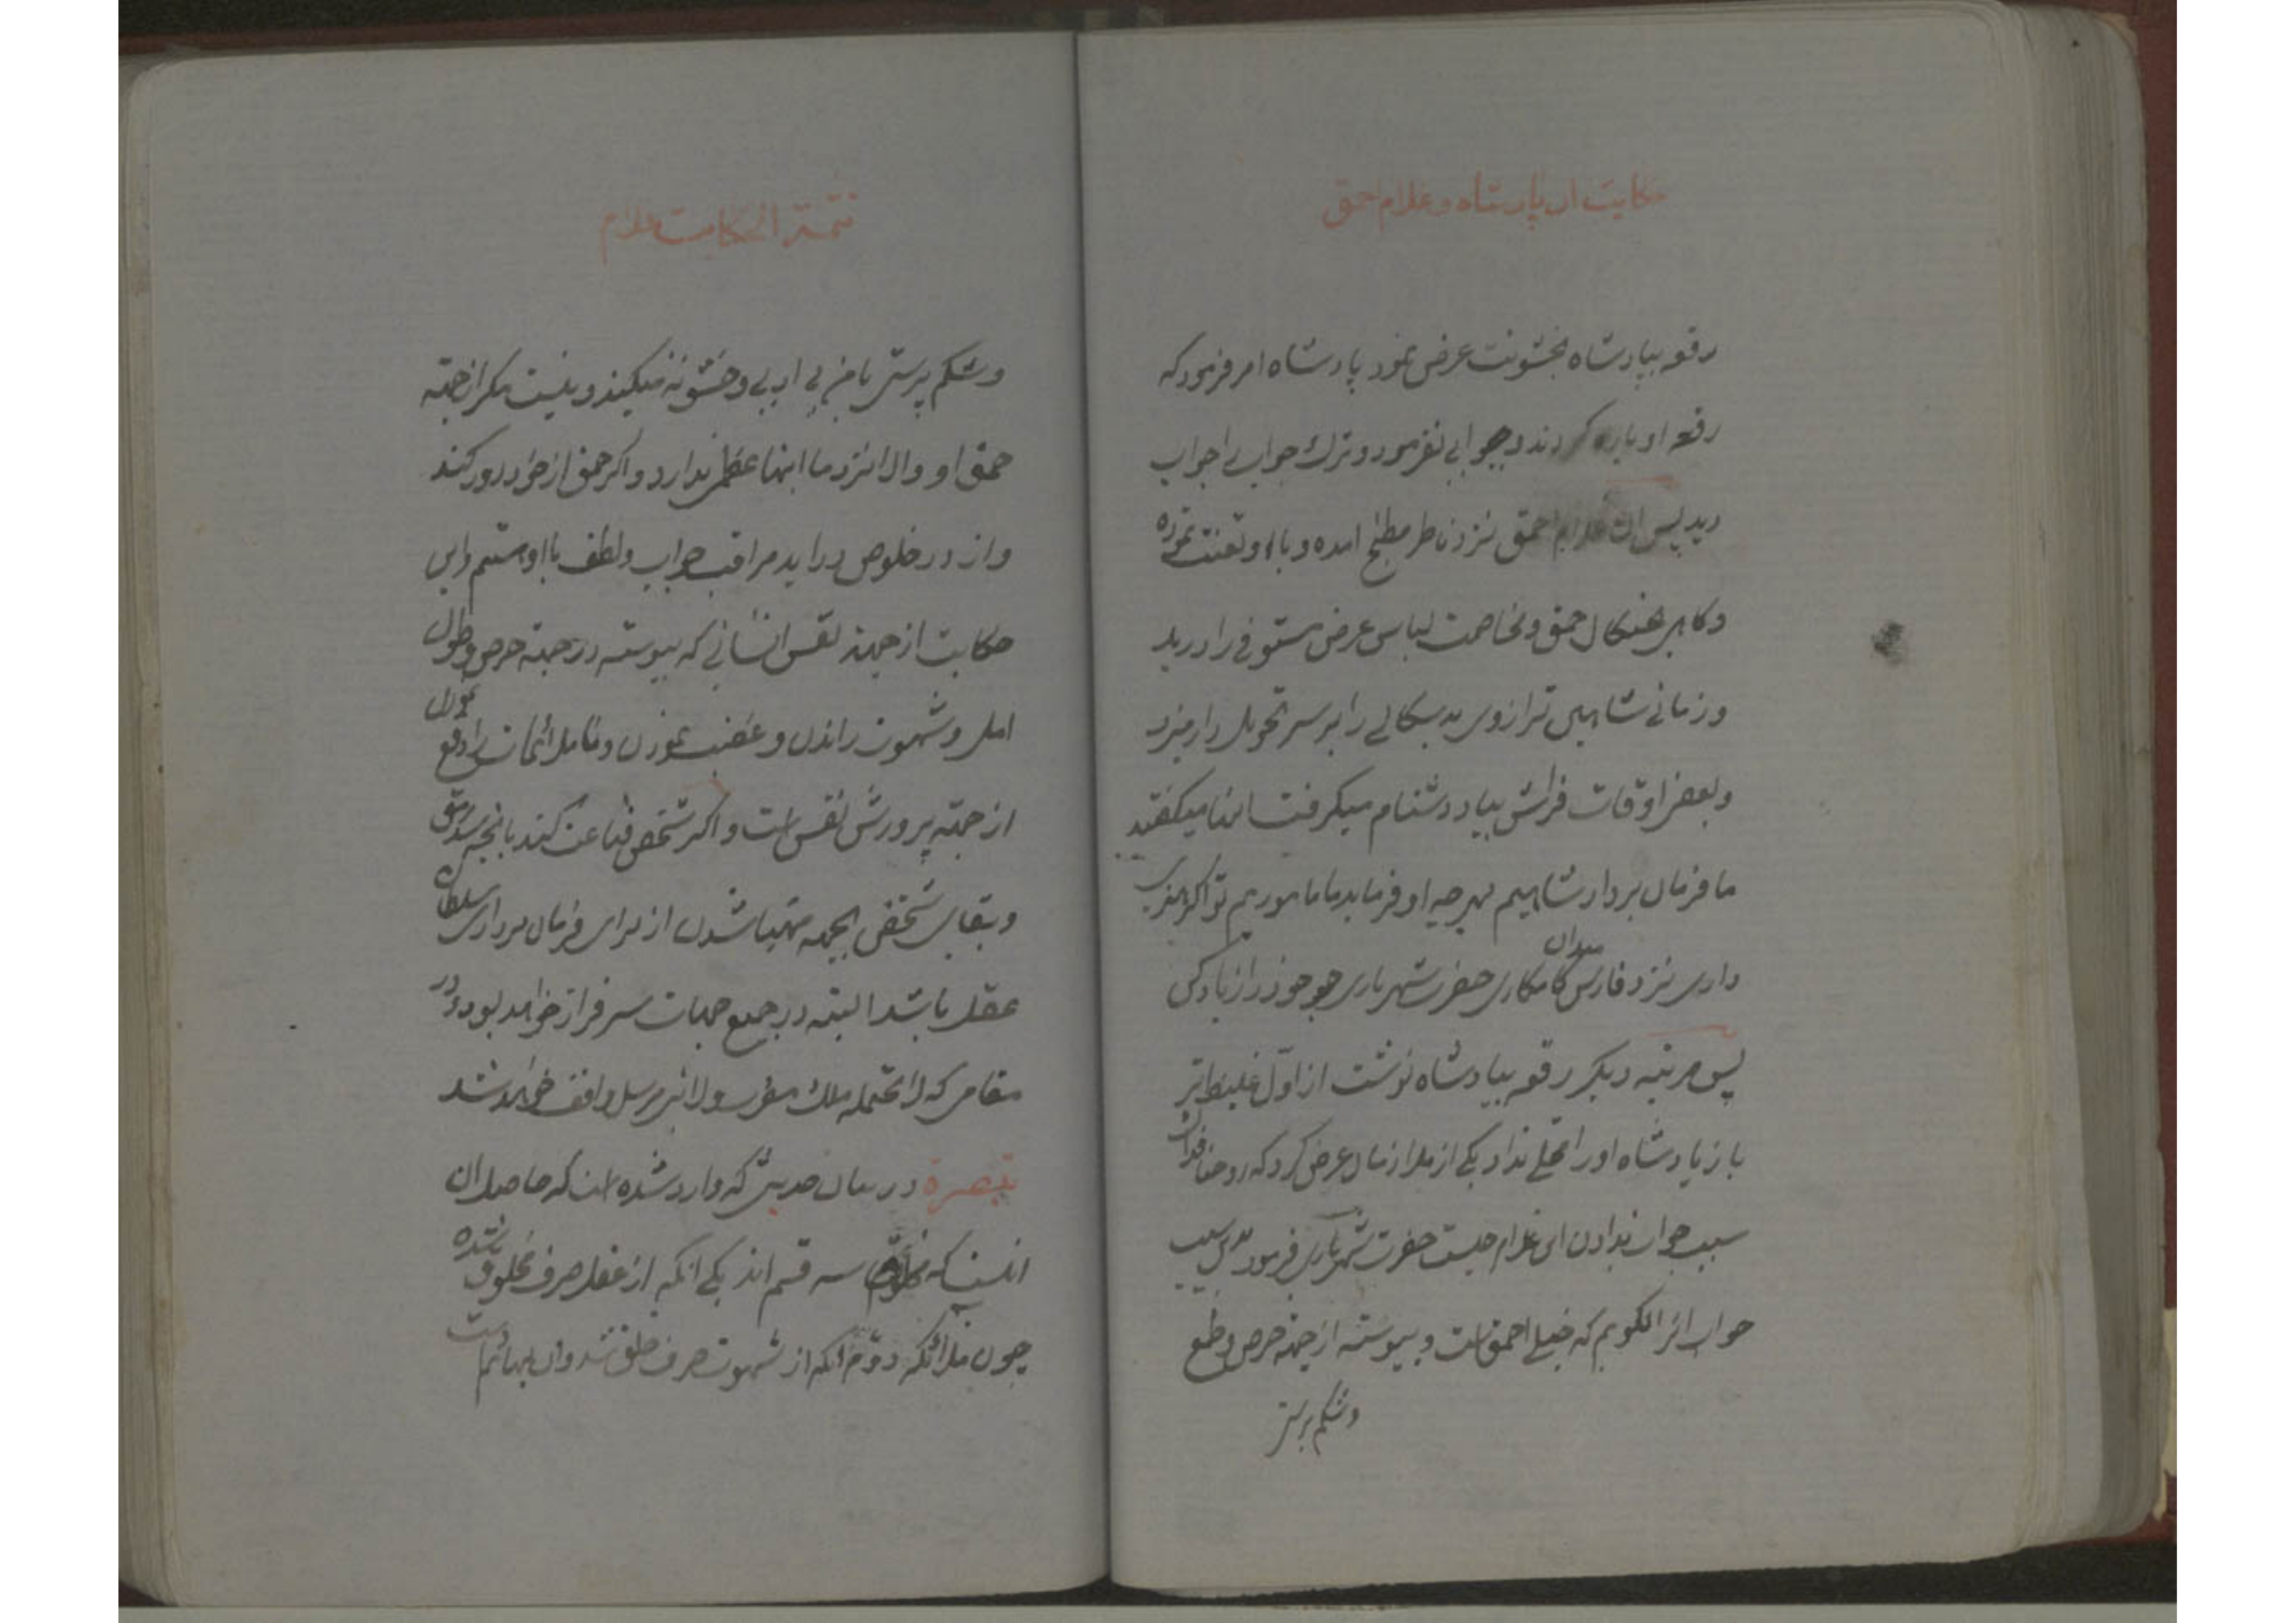 حکایت ان پادشاه و غلام احمق
رقعه بپادشاه بخشونت عرض نمود پادشاه امر فرمود که
رقعه او پاره کردند و جوابی نفرمود و ترک جواب را جواب
دید پس ان غلام احمق نزد ناظر مطبخ امده و با او تعنت نموده
و کاهی بچنکال حمق و مخاصمت لباس عرض مستوفی را درید
و زمانی شاهین ترازوی بدسکالی را بر سر تحویل دار میزد
و بعضی اوقات فراش بیاد دشنام میکرفت اینها میکفتند
ما فرمان بردار شاهیم بهرچه او فرماید ما ماموریم تو اکر هنری
داری نزد فارس میدان کامکاری حضرت شهریاری جو خود را زیاد کن
پس مرتبه دیکر رقعه بپادشاه نوشت از اول غلیظ تر
باز پادشاه او را محلی نداد یکی از ملازمان عرض کرد که روحنا فداک
سبب جواب ندادن این غلام چیست حضرت شهریاری فرمود بدین سبب
جواب انرا نکویم که خیلی احمق است و پیوسته از جهته حرص و طمع
و شکم پرستی
تتمة الحکایت غلام
و شکم پرستی با من بی ادبی و خشونه میکند و نیست مکر از جهته
حمق او والا نزد ما اینها عظمی ندارد و اکر حمق از خود دور کند
و از در خلوص دراید مراقب جواب و لطف با او هستم و این
حکایت از جهته نفس انسانی که پیوسته در جهته حرص و طول
امل و شهوت راندن و غضب نمودن و ناملائمات را دفع نمودن
از جهته پرورش نفس است و اکر شخص قناعت کند بانچه سد رمق
و بقای شخص بجهه مهیا شدن از برای فرمان برداری سلطان
عقل باشد البته در جمیع جهات سرفراز خواهد بود و در
مقامی که لا یحتمله ملک مقرب ولا نبی مرسل واقف خواهد شد
تبصرة در بیان حدیثی که وارد شده است که حاصل ان
اینست که مخلوق سه قسم اند یکی انکه از عقل صرف مخلوق شده
چون ملائکه دوم انکه از شهوت صرف خلق شد و ان بهائم است